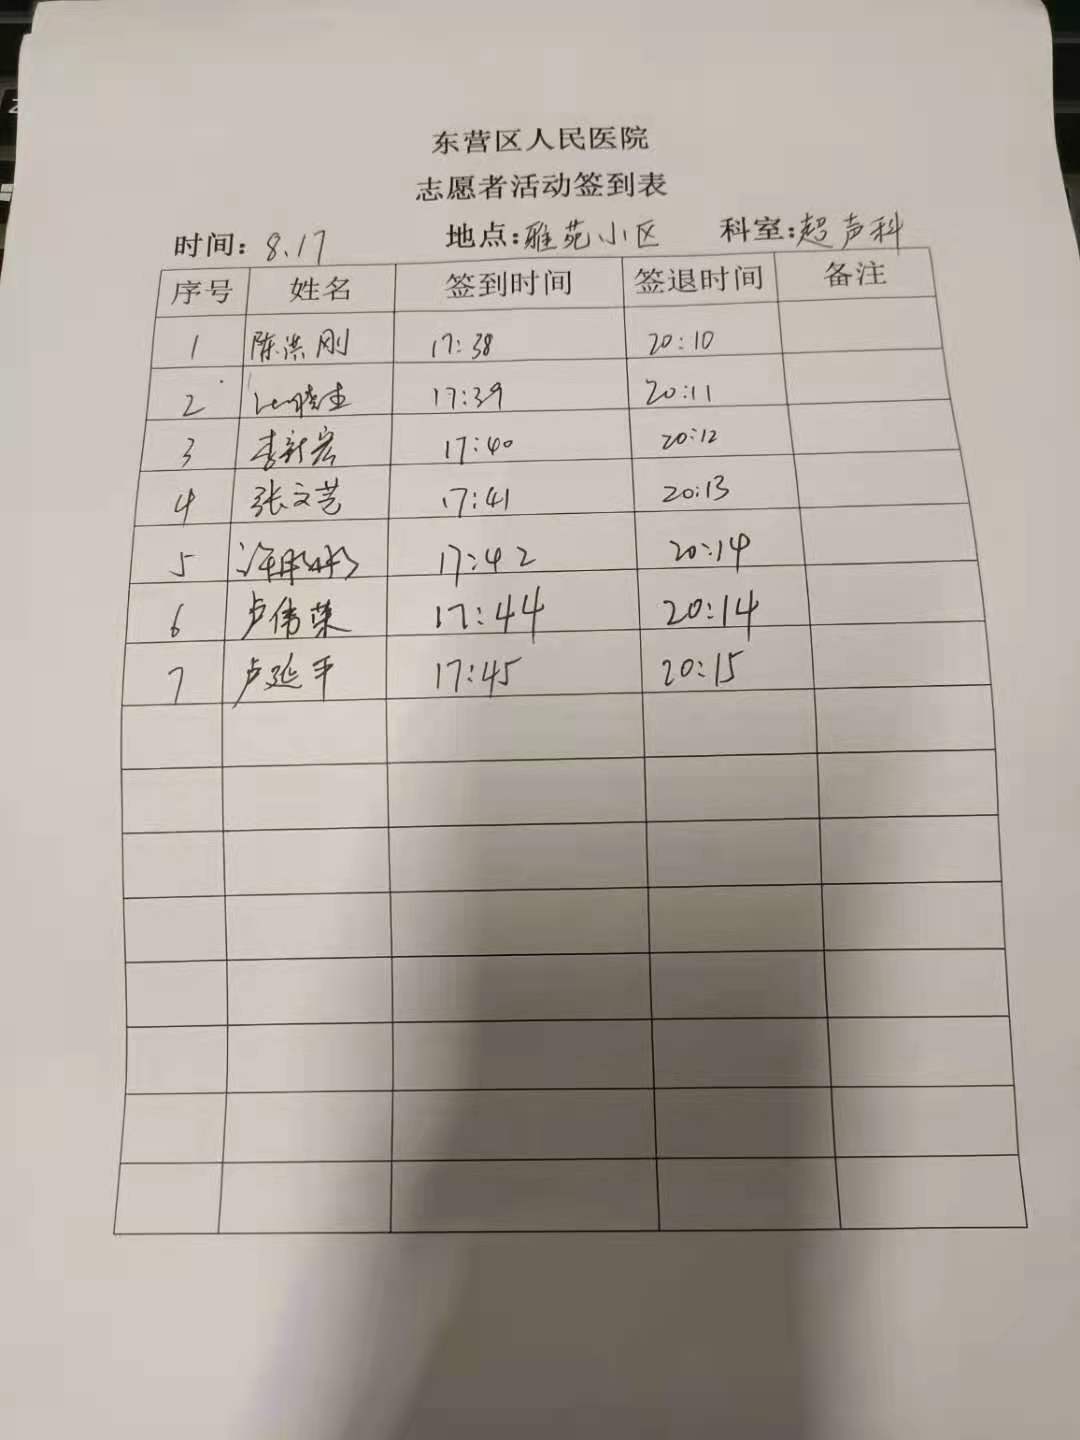 东营区人民医院
志愿者活动签到表
时间：8.17 地点：雅苑小区 科室：超声科
序号 姓名 签到时间 签退时间 备注
1 陈洪刚 17:38 20:10
2 17:39 20:11
3 李新宏 17:40 20:12
4 张文艺 17:41 20:13
5 17:42 20:14
6 卢伟荣 17:44 20:14
7 卢延平 17:45 20:15